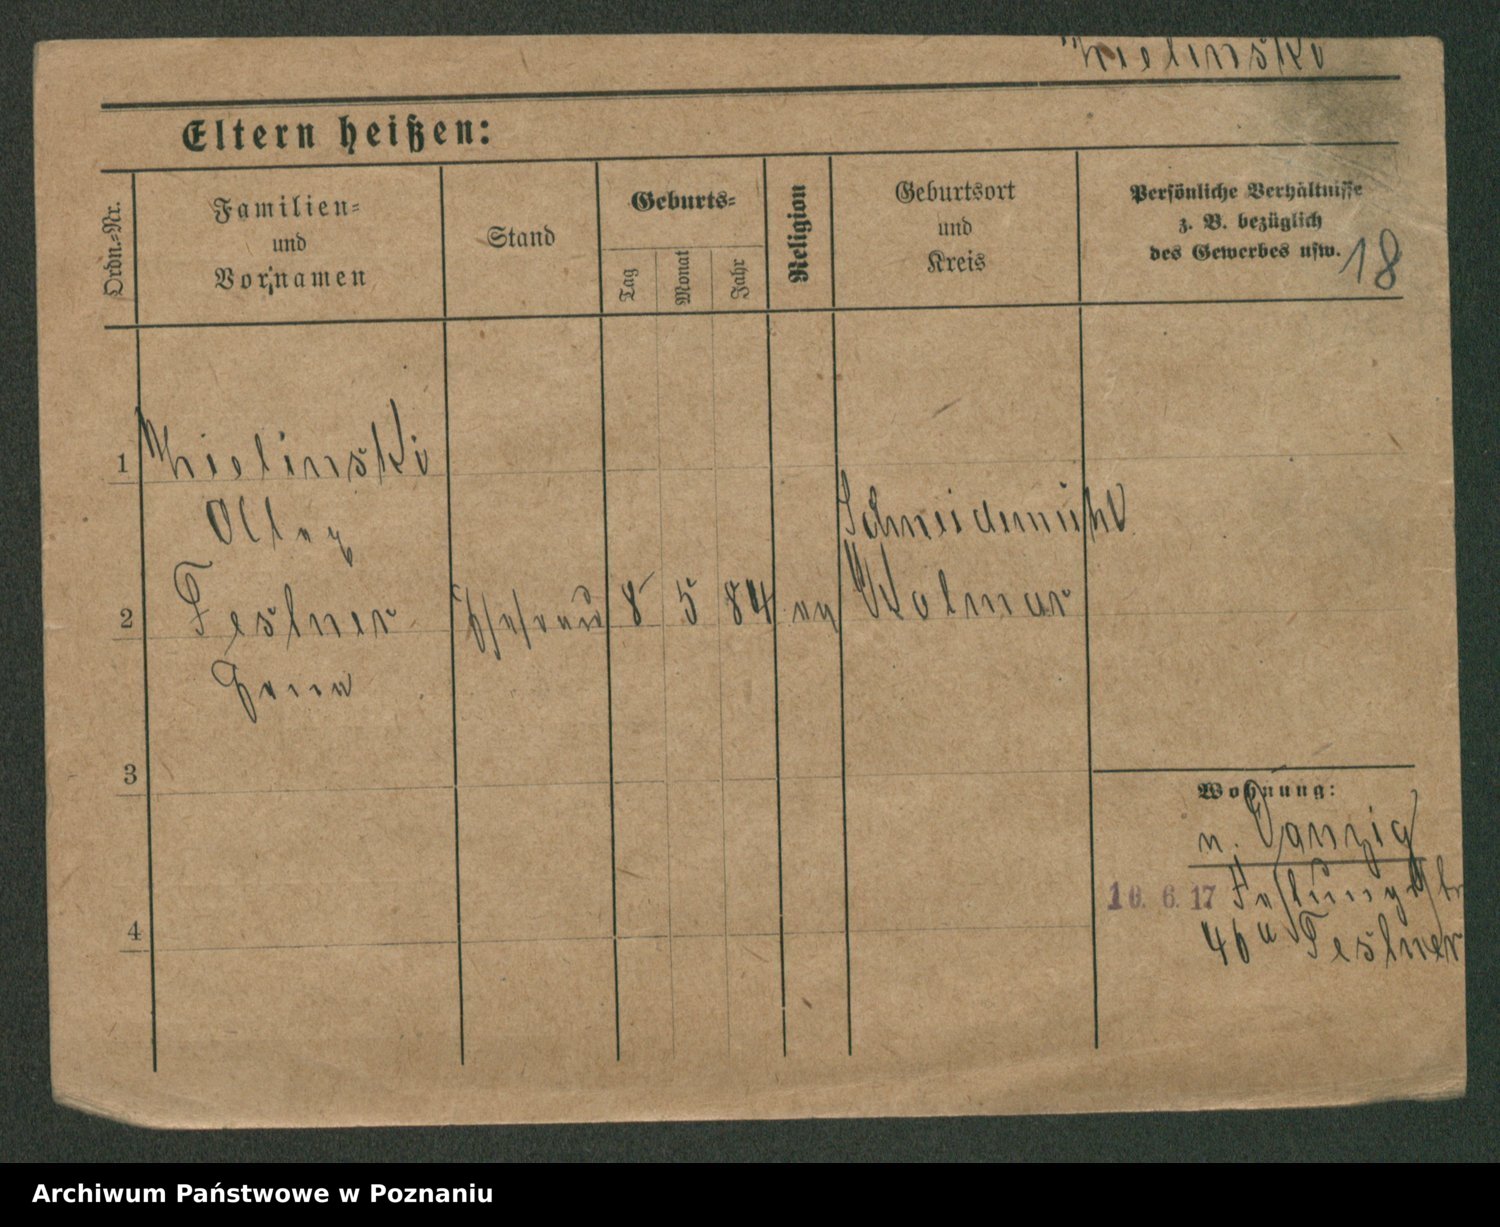 Eltern heißen:
Ordn.=Nr.
Familien=
und
Vornamen
Stand
Geburts=
Tag
Monat
Jahr
Religion
Geburtsort
und
Kreis
Persönliche Verhältnisse
z. B. bezüglich
des Gewerbes usw.
18
1
Schneidemühl
2
Teslner
Ehefrau
8
5
84
ev
Kolmar
3
Wohnung:
n. Danzig
16. 6. 17
4
46a Teslner
Archiwum Państwowe w Poznaniu